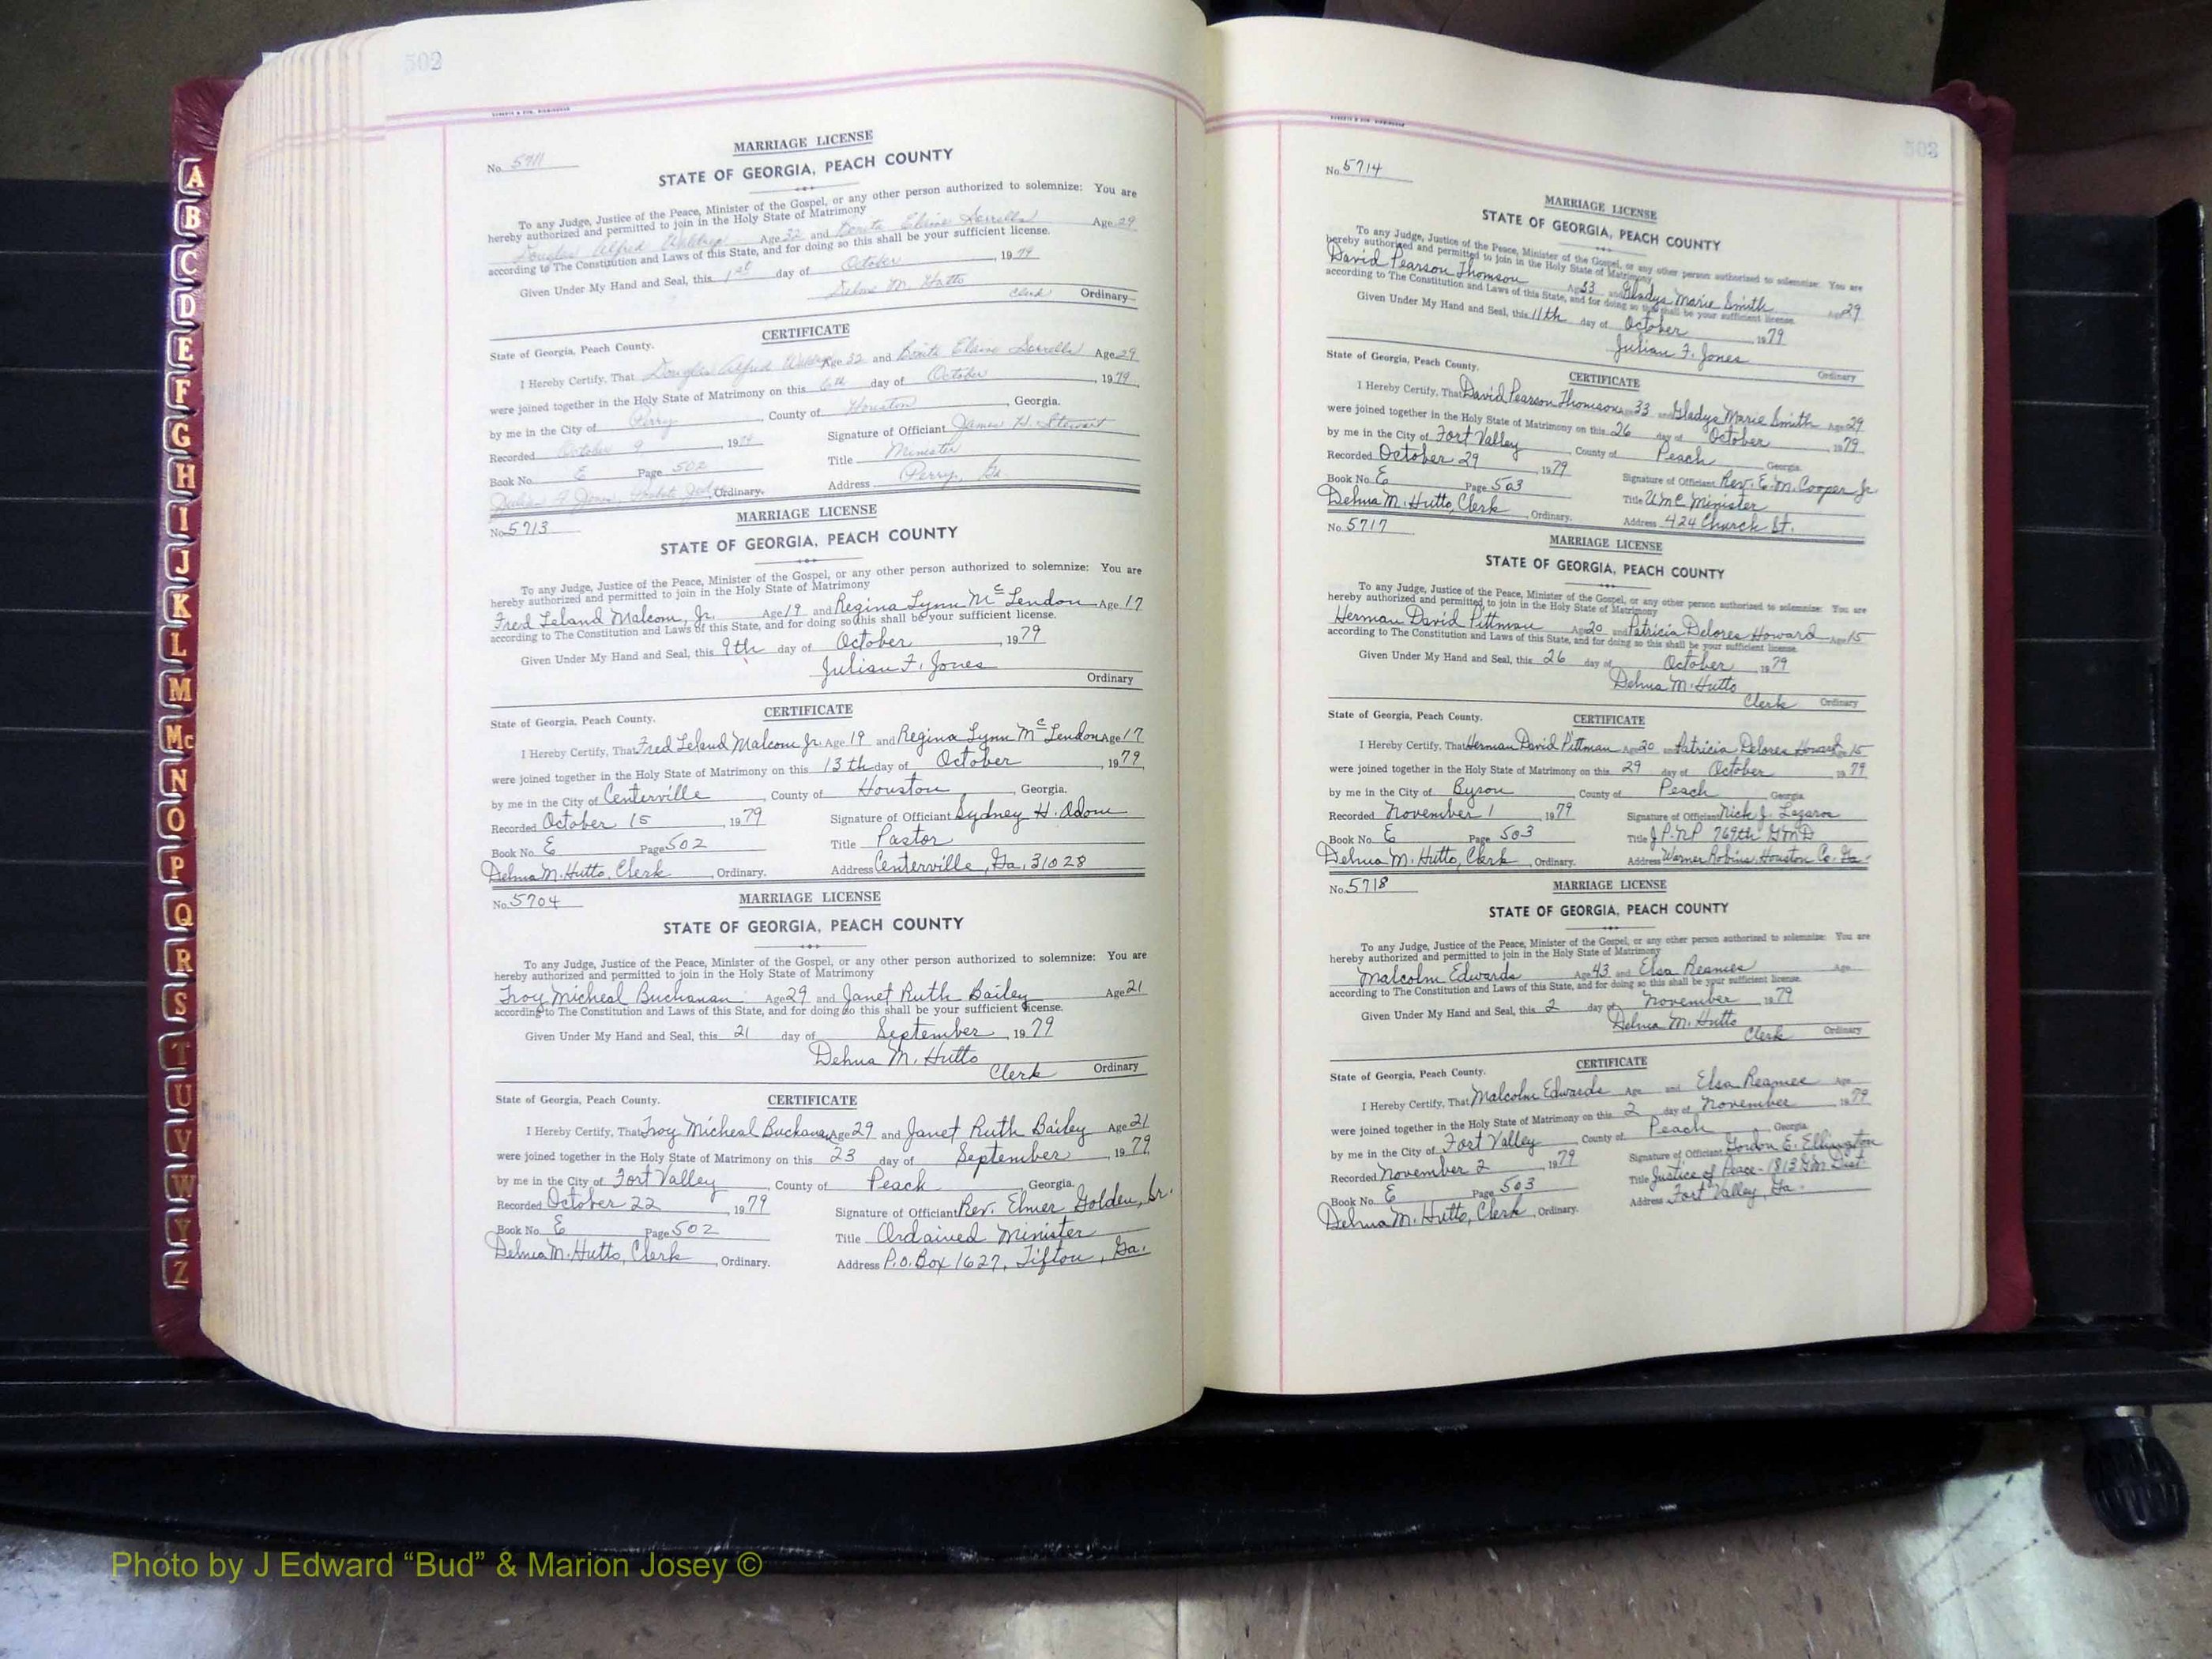 502
MARRIAGE LICENSE
No. 5711
STATE OF GEORGIA, PEACH COUNTY
To any Judge, Justice of the Peace, Minister of the Gospel, or any other person authorized to solemnize: You are
hereby authorized and permitted to join in the Holy State of Matrimony
Douglas Alfred Waldrip Age 32 and Bonita Elaine Sorrells Age 29
according to The Constitution and Laws of this State, and for doing so this shall be your sufficient license.
Given Under My Hand and Seal, this 1st day of October, 1979
Delma M. Hutto
Clerk Ordinary
CERTIFICATE
State of Georgia, Peach County.
I Hereby Certify, That Douglas Alfred Waldrip Age 32 and Bonita Elaine Sorrells Age 29
were joined together in the Holy State of Matrimony on this 6th day of October, 1979,
by me in the City of Perry, County of Houston, Georgia.
Recorded October 9 1979 Signature of Officiant James H. Stewart
Book No. E Page 502 Title Minister
Julian F. Jones, Probate Judge, Ordinary. Address Perry, Ga.
MARRIAGE LICENSE
No. 5713
STATE OF GEORGIA, PEACH COUNTY
To any Judge, Justice of the Peace, Minister of the Gospel, or any other person authorized to solemnize: You are
hereby authorized and permitted to join in the Holy State of Matrimony
Fred Leland Malcom, Jr. Age 19 and Regina Lynn McLendon Age 17
according to The Constitution and Laws of this State, and for doing so this shall be your sufficient license.
Given Under My Hand and Seal, this 9th day of October, 1979
Julian F. Jones
Ordinary
CERTIFICATE
State of Georgia, Peach County.
I Hereby Certify, That Fred Leland Malcom Jr. Age 19 and Regina Lynn McLendon Age 17
were joined together in the Holy State of Matrimony on this 13th day of October, 1979,
by me in the City of Centerville, County of Houston, Georgia.
Recorded October 15, 1979 Signature of Officiant Sydney H. Odom
Book No. E Page 502 Title Pastor
Delma M. Hutto, Clerk, Ordinary. Address Centerville, Ga. 31028
No. 5704 MARRIAGE LICENSE
STATE OF GEORGIA, PEACH COUNTY
To any Judge, Justice of the Peace, Minister of the Gospel, or any other person authorized to solemnize: You are
hereby authorized and permitted to join in the Holy State of Matrimony
Troy Micheal Buchanan Age 29 and Janet Ruth Bailey Age 21
according to The Constitution and Laws of this State, and for doing so this shall be your sufficient license.
Given Under My Hand and Seal, this 21 day of September, 1979
Delma M. Hutto
Clerk Ordinary
State of Georgia, Peach County. CERTIFICATE
I Hereby Certify, That Troy Micheal Buchanan Age 29 and Janet Ruth Bailey Age 21
were joined together in the Holy State of Matrimony on this 23 day of September, 1979,
by me in the City of Fort Valley, County of Peach, Georgia.
Recorded October 22, 1979 Signature of Officiant Rev. Elmer Golden, Sr.
Book No. E Page 502 Title Ordained Minister
Delma M. Hutto, Clerk, Ordinary. Address P.O. Box 1627, Tifton, Ga.
503
No. 5714
MARRIAGE LICENSE
STATE OF GEORGIA, PEACH COUNTY
To any Judge, Justice of the Peace, Minister of the Gospel, or any other person authorized to solemnize: You are
hereby authorized and permitted to join in the Holy State of Matrimony
David Pearson Thomson Age 33 and Gladys Marie Smith Age 29
according to The Constitution and Laws of this State, and for doing so this shall be your sufficient license.
Given Under My Hand and Seal, this 11th day of October, 1979
Julian F. Jones
Ordinary
State of Georgia, Peach County. CERTIFICATE
I Hereby Certify, That David Pearson Thomson Age 33 and Gladys Marie Smith Age 29
were joined together in the Holy State of Matrimony on this 26 day of October, 1979,
by me in the City of Fort Valley, County of Peach, Georgia.
Recorded October 29, 1979 Signature of Officiant Rev. E. M. Cooper Jr.
Book No. E Page 503 Title UMC Minister
Delma M. Hutto, Clerk, Ordinary. Address 424 Church St.
No. 5717
MARRIAGE LICENSE
STATE OF GEORGIA, PEACH COUNTY
To any Judge, Justice of the Peace, Minister of the Gospel, or any other person authorized to solemnize: You are
hereby authorized and permitted to join in the Holy State of Matrimony
Herman David Pittman Age 20 and Patricia Delores Howard Age 15
according to The Constitution and Laws of this State, and for doing so this shall be your sufficient license.
Given Under My Hand and Seal, this 26 day of October, 1979
Delma M. Hutto
Clerk Ordinary
State of Georgia, Peach County. CERTIFICATE
I Hereby Certify, That Herman David Pittman Age 20 and Patricia Delores Howard Age 15
were joined together in the Holy State of Matrimony on this 29 day of October, 1979
by me in the City of Byron, County of Peach, Georgia.
Recorded November 1, 1979 Signature of Officiant Nick J. Lazaros
Book No. E Page 503 Title J.P. NP 769th GMD
Delma M. Hutto, Clerk, Ordinary. Address Warner Robins, Houston Co. Ga.
No. 5718 MARRIAGE LICENSE
STATE OF GEORGIA, PEACH COUNTY
To any Judge, Justice of the Peace, Minister of the Gospel, or any other person authorized to solemnize: You are
hereby authorized and permitted to join in the Holy State of Matrimony
Malcolm Edwards Age 43 and Elsa Reames Age
according to The Constitution and Laws of this State, and for doing so this shall be your sufficient license.
Given Under My Hand and Seal, this 2 day of November, 1979
Delma M. Hutto
Clerk Ordinary
CERTIFICATE
State of Georgia, Peach County.
I Hereby Certify, That Malcolm Edwards Age and Elsa Reames Age
were joined together in the Holy State of Matrimony on this 2 day of November 1979
by me in the City of Fort Valley, County of Peach, Georgia
Recorded November 2, 1979 Signature of Officiant Gordon E. Ellington
Book No. E Page 503 Title Justice of Peace-1813 GM Dist.
Delma M. Hutto, Clerk, Ordinary. Address Fort Valley, Ga.
A
B
C
D
E
F
G
H
I
J
K
L
M
Mc
N
O
P
Q
R
S
T
U
V
W
Y
Z
Photo by J Edward “Bud” & Marion Josey ©